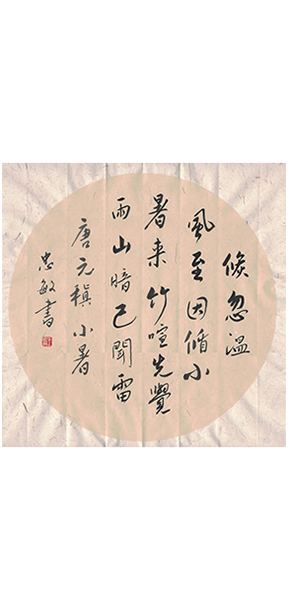 倏忽温
風至因循小
暑来竹喧先覺
雨山暗已聞雷
唐元稹小暑
忠敏書